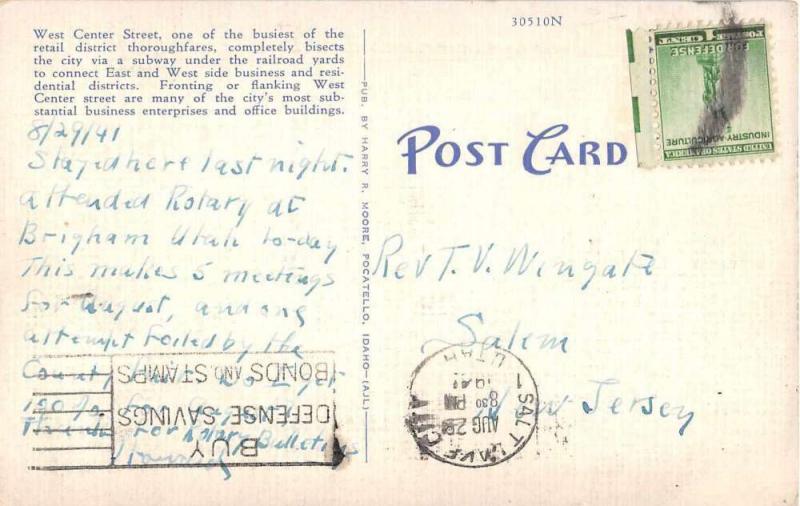 30510N
West Center Street, one of the busiest of the
retail district thoroughfares, completely bisects
the city via a subway under the railroad yards
to connect East and West side business and resi-
dential districts. Fronting or flanking West
Center street are many of the city's most sub-
stantial business enterprises and office buildings.
8/29/41
Stayed here last night.
attended Rotary at
Brigham Utah to-day
This makes 5 meetings
for august, and one
attempt foiled by the
County
for Rotary Bulletins
PUB. BY HARRY R. MOORE, POCATELLO, IDAHO—(AJL)
POST CARD
UNITED STATES OF AMERICA
INDUSTRY-AGRICULTURE
FOR DEFENSE
POSTAGE 1 CENT
Rev T. V. Wingate
Salem
New Jersey
SALT LAKE CITY
1
UTAH
AUG 29
8 30 PM
1941
BUY
DEFENSE SAVINGS
BONDS AND STAMPS